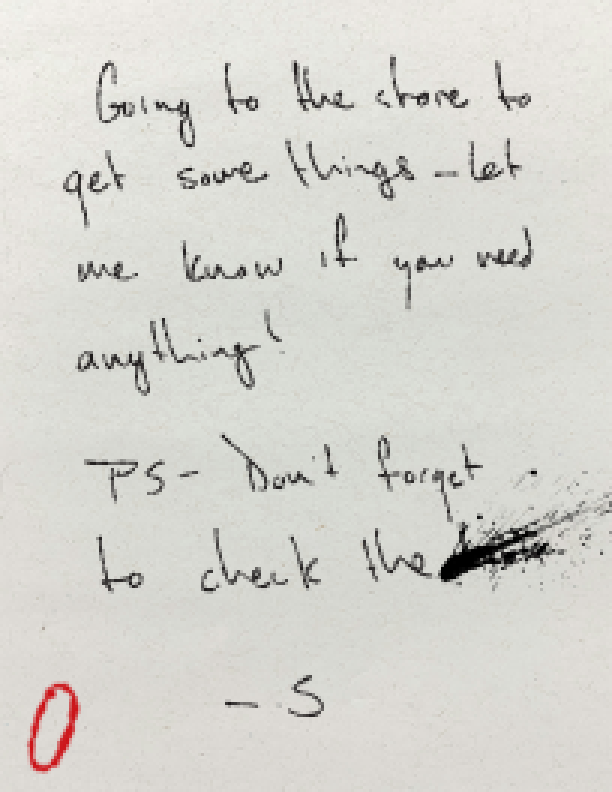 Going to the store to
get some things - let
me know if you need
anything!
PS - Don't forget
to check the
- S
0